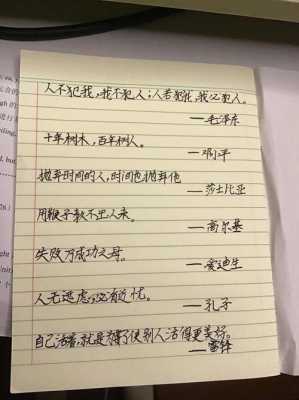 人不犯我,我不犯人;人若犯我,我必犯人。
—毛泽东
十年树木,百年树人。
—邓小平
抛弃时间的人,时间也抛弃他
—莎士比亚
用鞭子教不出人来。
—高尔基
失败乃成功之母。
—爱迪生
人无远虑,必有近忧。
—孔子
自己活着,就是为了使别人活得更美好。
—雷锋